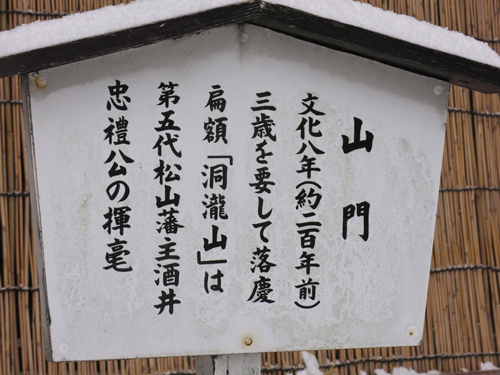 山門
文化八年(約二百年前)
三歳を要して落慶
扁額「洞瀧山」は
第五代松山藩主酒井
忠禮公の揮毫